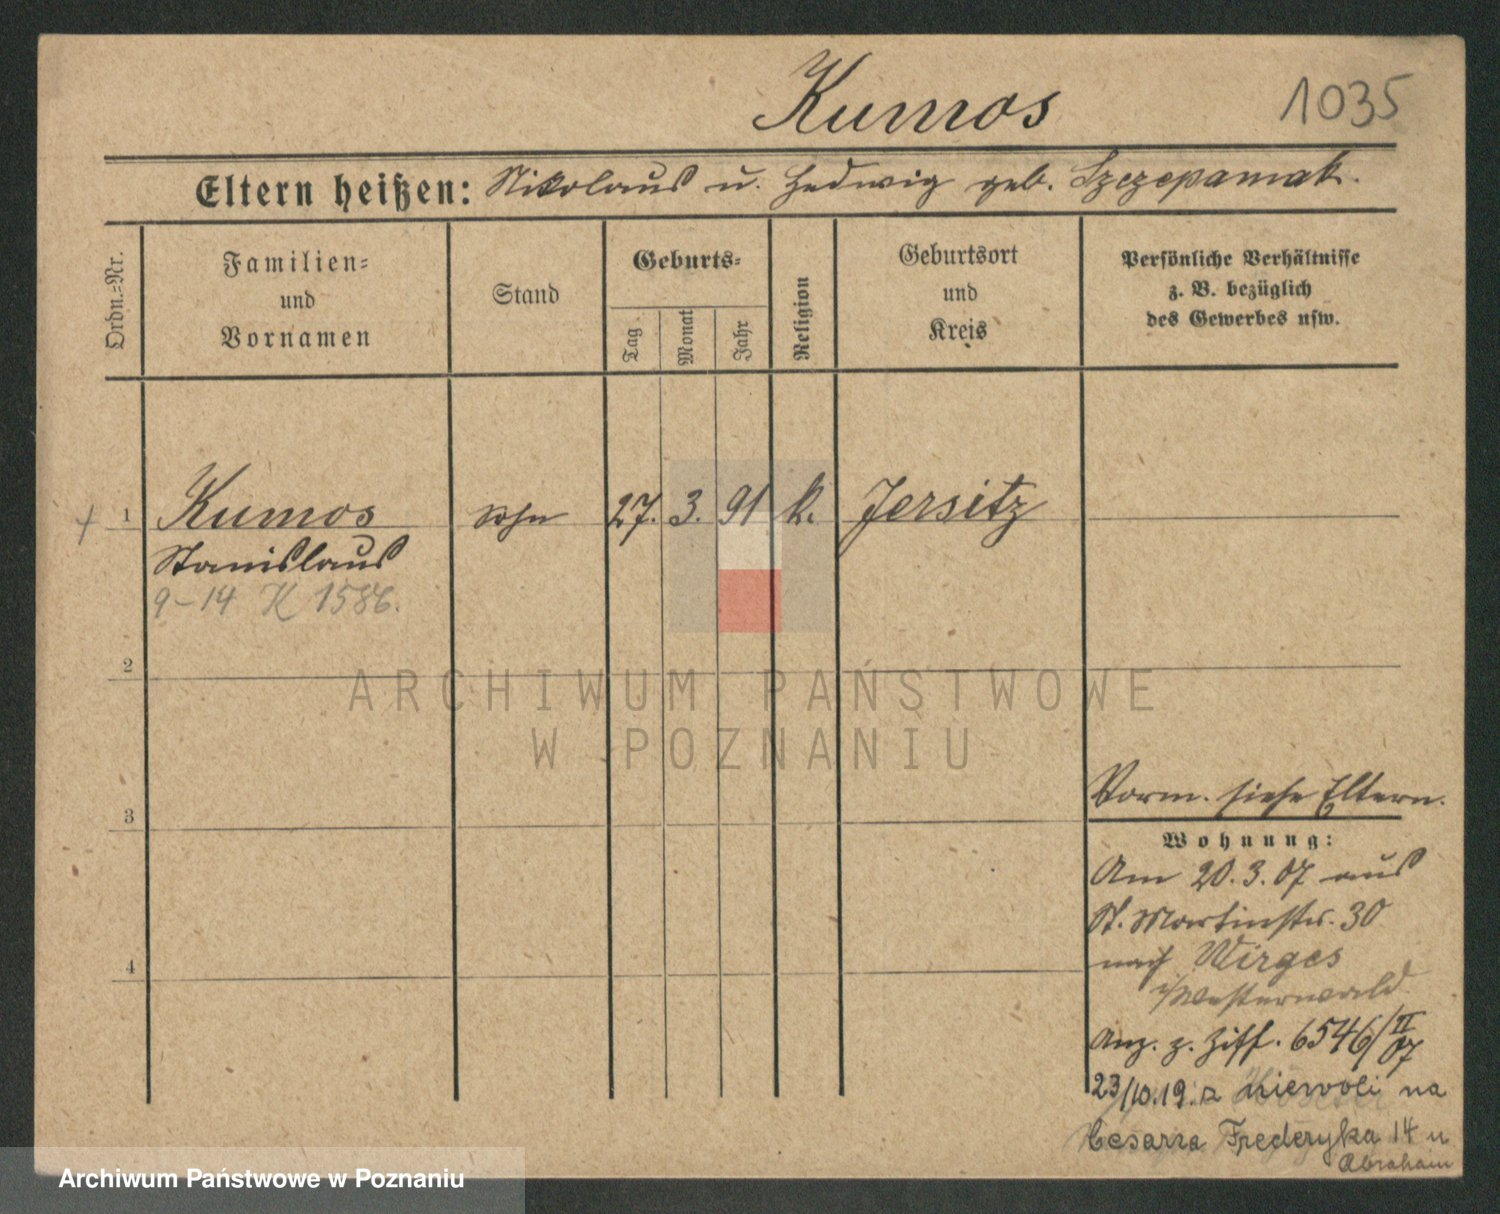 Kumos
1035
Eltern heißen: Nikolaus u. Hedwig geb. Szczepaniak.
Ordn.-Nr.
Familien-
und
Vornamen
Stand
Geburts-
Tag
Monat
Jahr
Religion
Geburtsort
und
Kreis
Persönliche Verhältnisse
z. B. bezüglich
des Gewerbes usw.
1 Kumos Sohn 27. 3. 91 k. Jersitz
Stanislaus
9-14 K 1586.
2
3
4
Vorm. siehe Eltern.
Wohnung:
Am 20.3.07 aus
St. Martinstr. 30
nach Wirges
i/Westerwald
Anz. z. Ziff. 6546/II 07
23/10.19. z Niewoli na
Cesarza Fryderyka 14 u
Abraham
ARCHIWUM PAŃSTWOWE
W POZNANIU
Archiwum Państwowe w Poznaniu